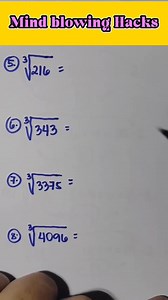 Mind blowing Hacks
5. ∛216 =
6. ∛343 =
7. ∛3375 =
8. ∛4096 =